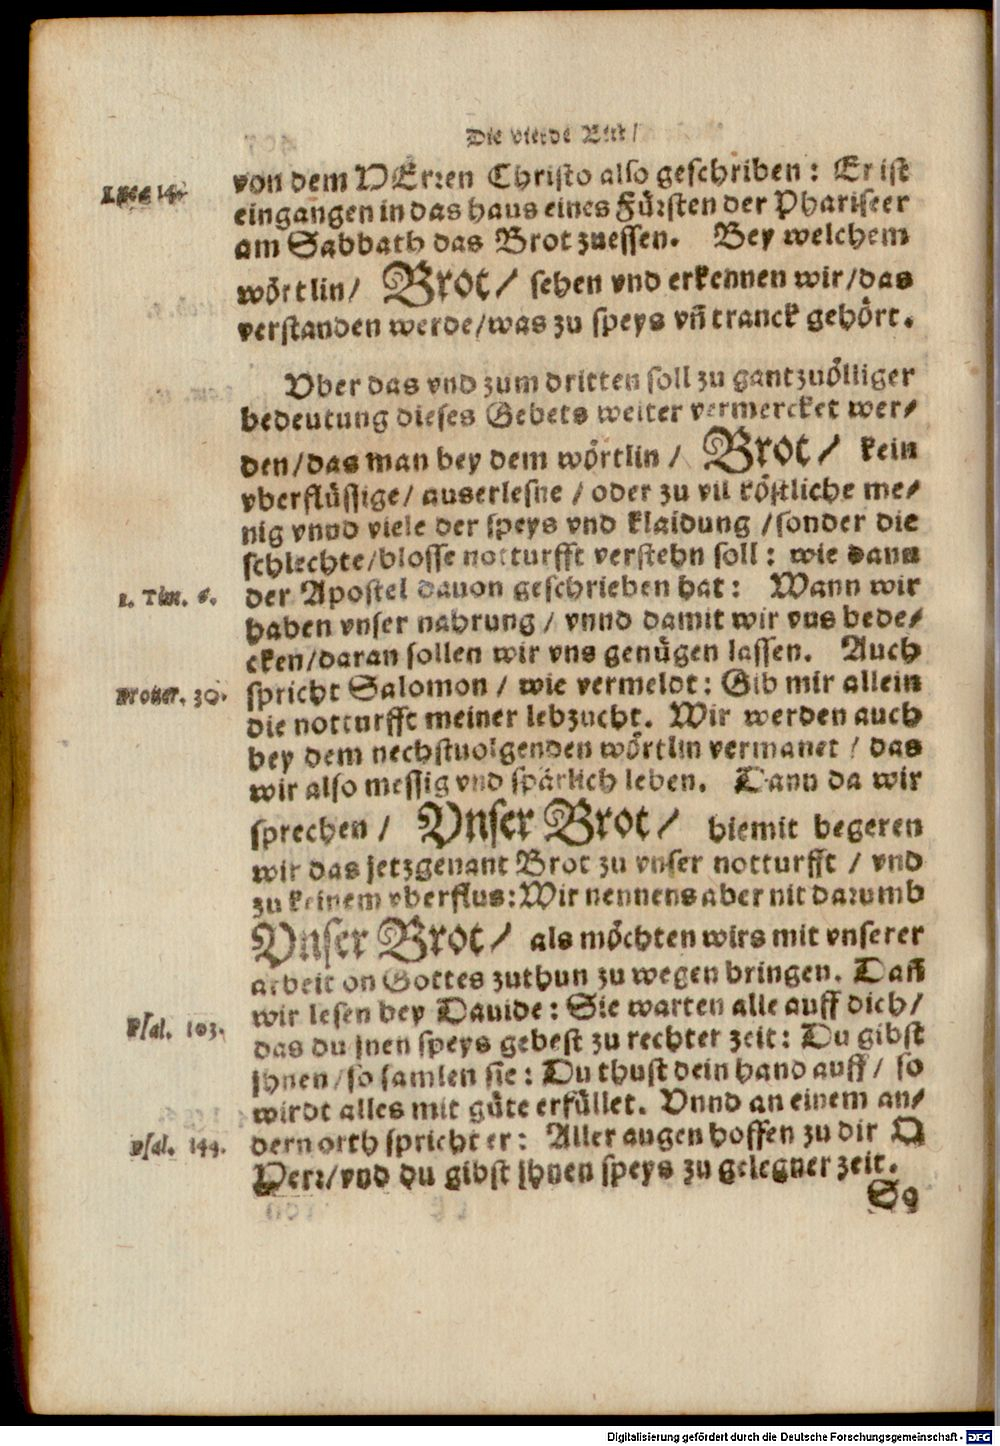 Die vierde Bitt/
Luce 14.
von dem HErren Christo also geschriben: Er ist
eingangen in das haus eines Fürsten der Phariseer
am Sabbath das Brot zuessen. Bey welchem
wörtlin/ Brot/ sehen vnd erkennen wir/das
verstanden werde/was zu speys vñ tranck gehört.
Vber das vnd zum dritten soll zu gantzuölliger
bedeutung dieses Gebets weiter vermercket wer/
den/das man bey dem wörtlin/ Brot/ kein
vberflüssige/ auserlesne/oder zu vil köstliche me/
nig vnnd viele der speys vnd klaidung/sonder die
schlechte/blosse notturfft verstehn soll: wie dann
1. Tim. 6.
der Apostel dauon geschrieben hat: Wann wir
haben vnser nahrung/ vnnd damit wir vns bede/
cken/daran sollen wir vns genügen lassen. Auch
Prouer. 30.
spricht Salomon/ wie vermeldt: Gib mir allein
die notturfft meiner lebzucht. Wir werden auch
bey dem nechstuolgenden wörtlin vermanet/ das
wir also messig vnd spärlich leben. Dann da wir
sprechen/ Vnser Brot/ hiemit begeren
wir das jetzgenant Brot zu vnser notturfft/ vnd
zu keinem vberflus: Wir nennens aber nit darumb
Vnser Brot/ als möchten wirs mit vnserer
arbeit on Gottes zuthun zu wegen bringen. Dañ
Psal. 103.
wir lesen bey Dauide: Sie warten alle auff dich/
das du jnen speys gebest zu rechter zeit: Du gibst
jhnen/so samlen sie: Du thust dein hand auff/ so
wirdt alles mit güte erfüllet. Vnnd an einem an/
Psal. 144.
dern orth spricht er: Aller augen hoffen zu dir O
Herr/vnd du gibst jhnen speys zu gelegner zeit.
So
Digitalisierung gefördert durch die Deutsche Forschungsgemeinschaft - DFG